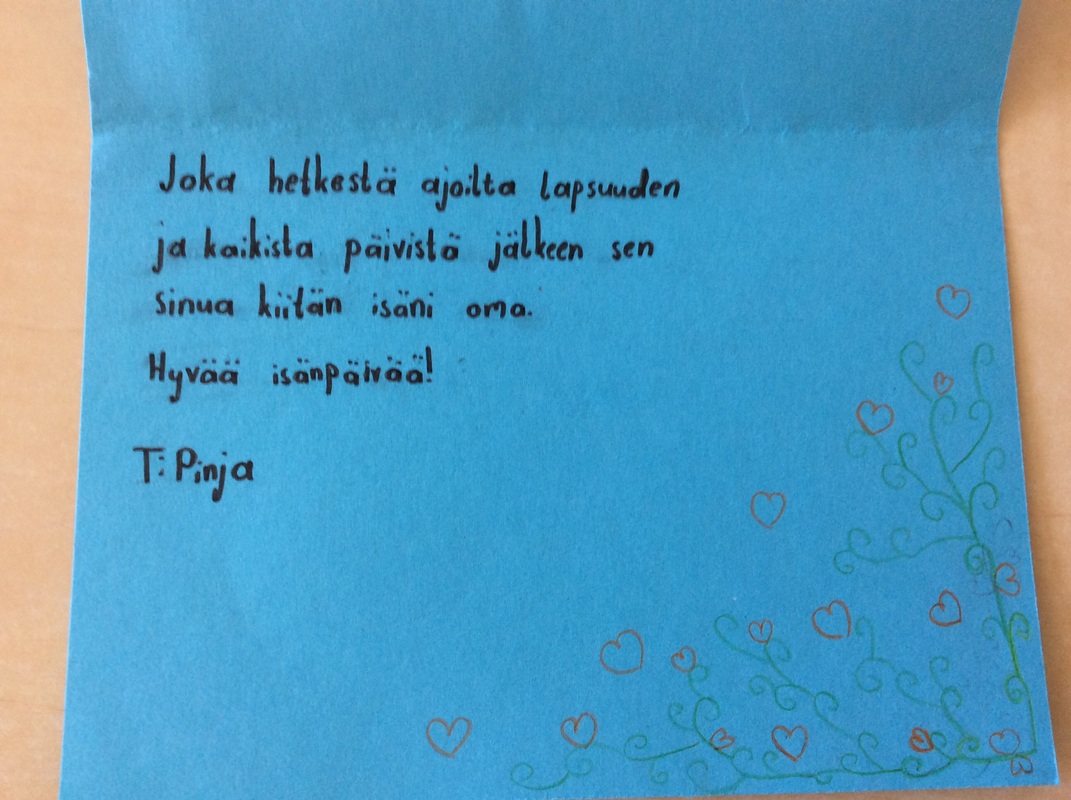 Joka hetkestä ajoilta lapsuuden
ja kaikista päivistä jälkeen sen
sinua kiitän isäni oma.
Hyvää isänpäivää!
T: Pinja